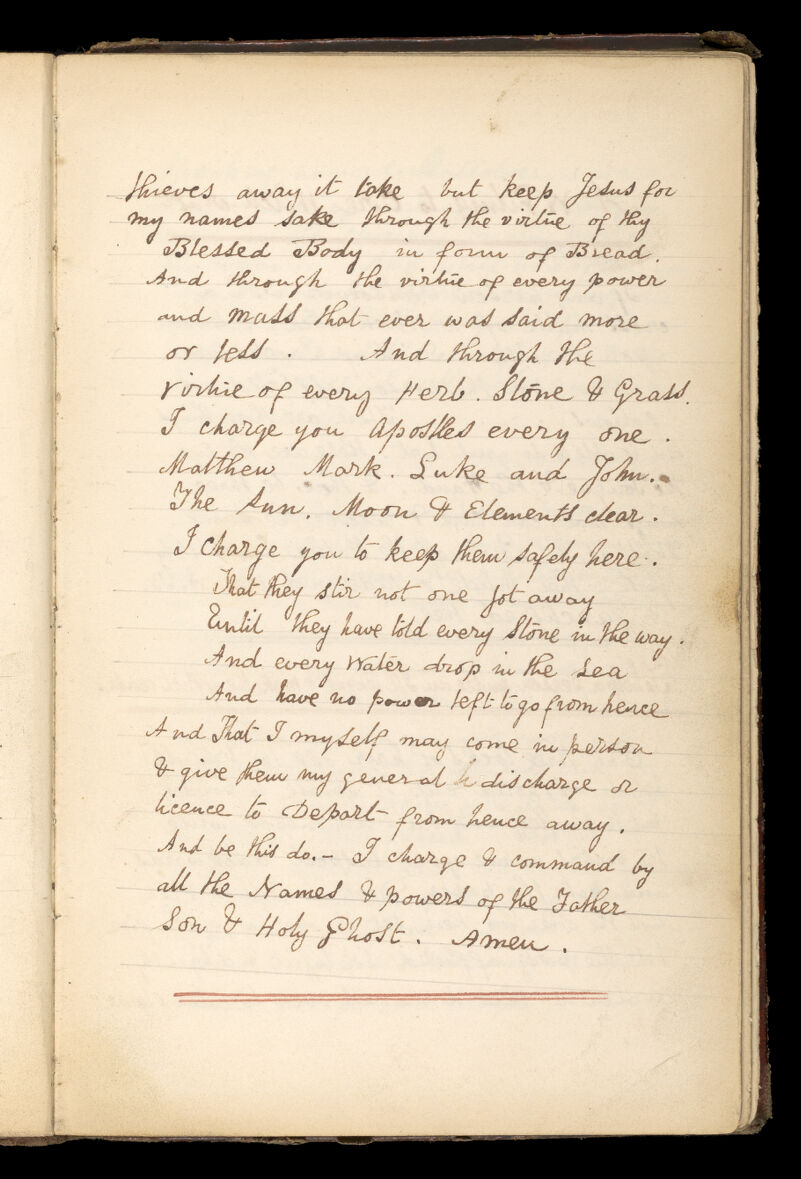 thieves away it take but keep Jesus for
my names sake through the virtue of thy
Blessed Body in form of Bread.
And through the virtue of every power
and mass that ever was said more
or less . And through the
virtue of every Herb . Stone & Grass.
I charge you Apostles every one .
Matthew Mark . Luke and John .
The Sun . Moon & Elements clear .
I charge you to keep them safely here .
That they stir not one jot away
Until they have told every Stone in the way .
And every Water drop in the Sea
And have no power left to go from hence
And That I myself may come in person
& give them my general discharge or
licence to Depart from hence away .
And be this do.- I charge & command by
all the Names & powers of the Father
Son & Holy Ghost . Amen .